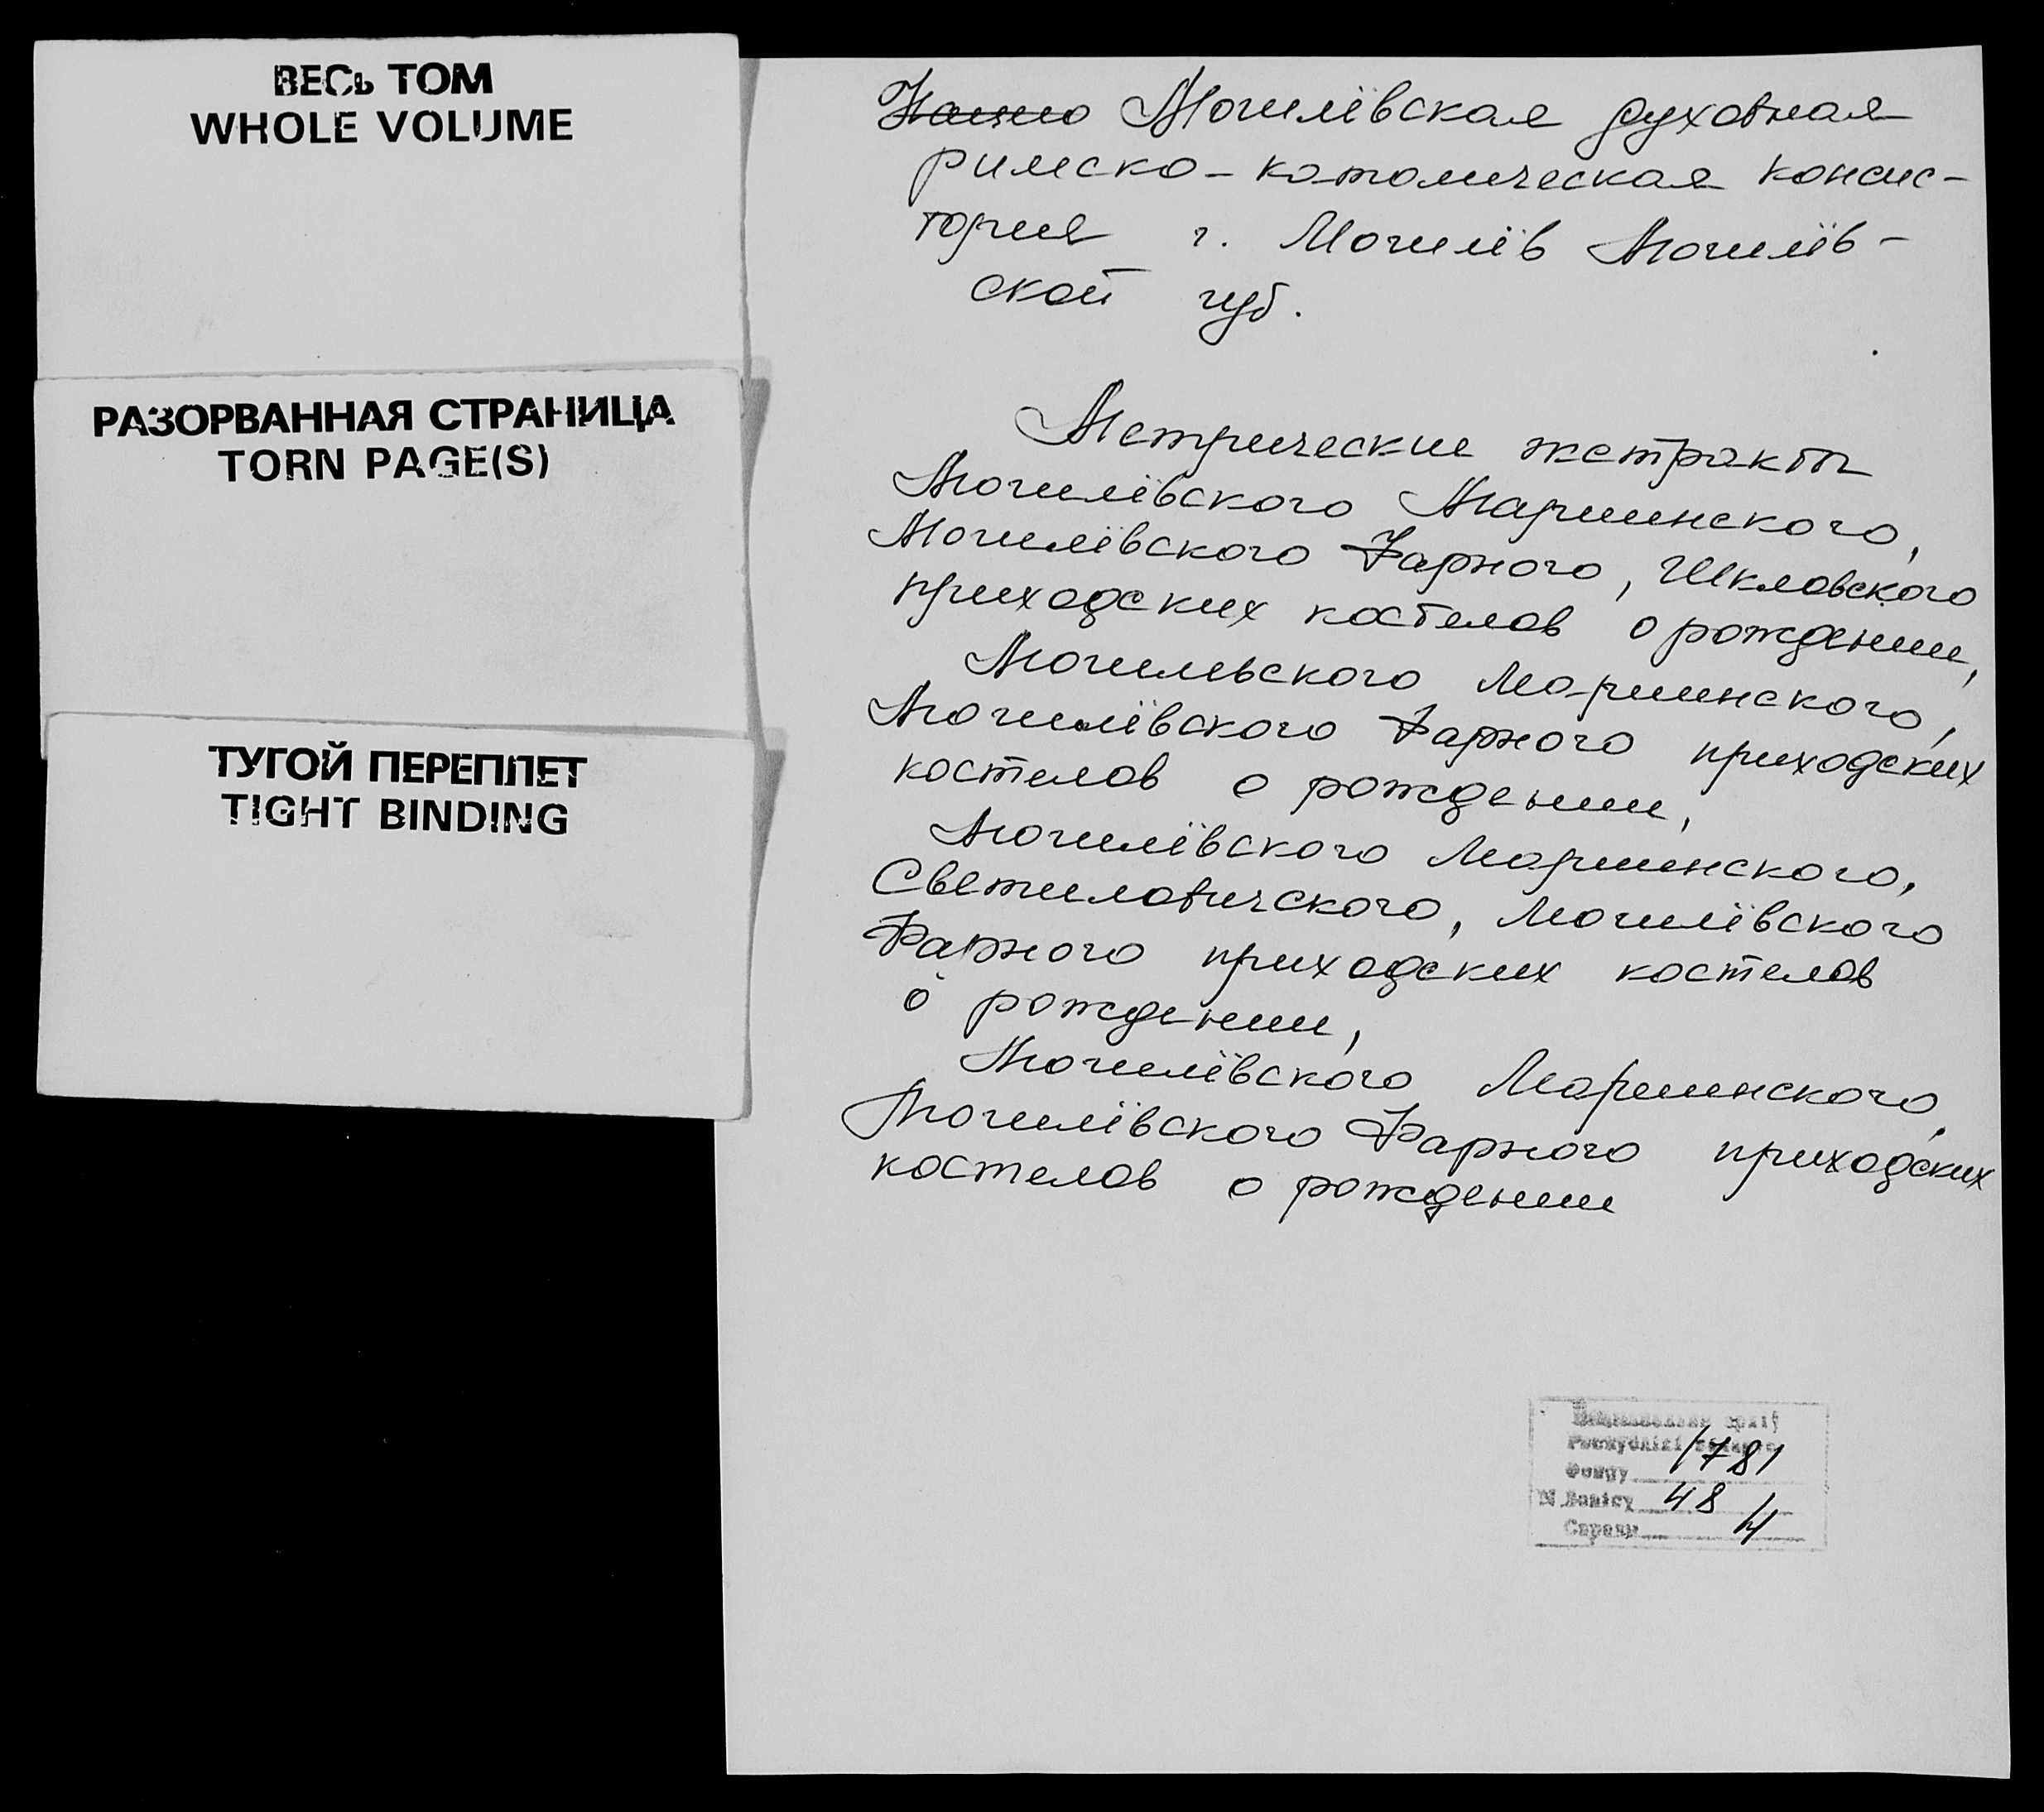 ВЕСЬ ТОМ
WHOLE VOLUME
РАЗОРВАННАЯ СТРАНИЦА
TORN PAGE(S)
ТУГОЙ ПЕРЕПЛЕТ
TIGHT BINDING
Могилёвская духовная
римско-католическая консис-
тория г. Могилёв Могилёв-
ской губ.
Метрические экстракты
Могилёвского Мариинского,
Могилёвского Фарного, Шкловского
приходских костелов о рождении,
Могилевского Мариинского,
Могилёвского Фарного приходских
костелов о рождении,
Могилёвского Мариинского,
Светиловичского, Могилёвского
Фарного приходских костелов
о рождении,
Могилёвского Мариинского,
Могилёвского Фарного приходских
костелов о рождении
Фонду 1781
N Вопісу 48
Справы 4